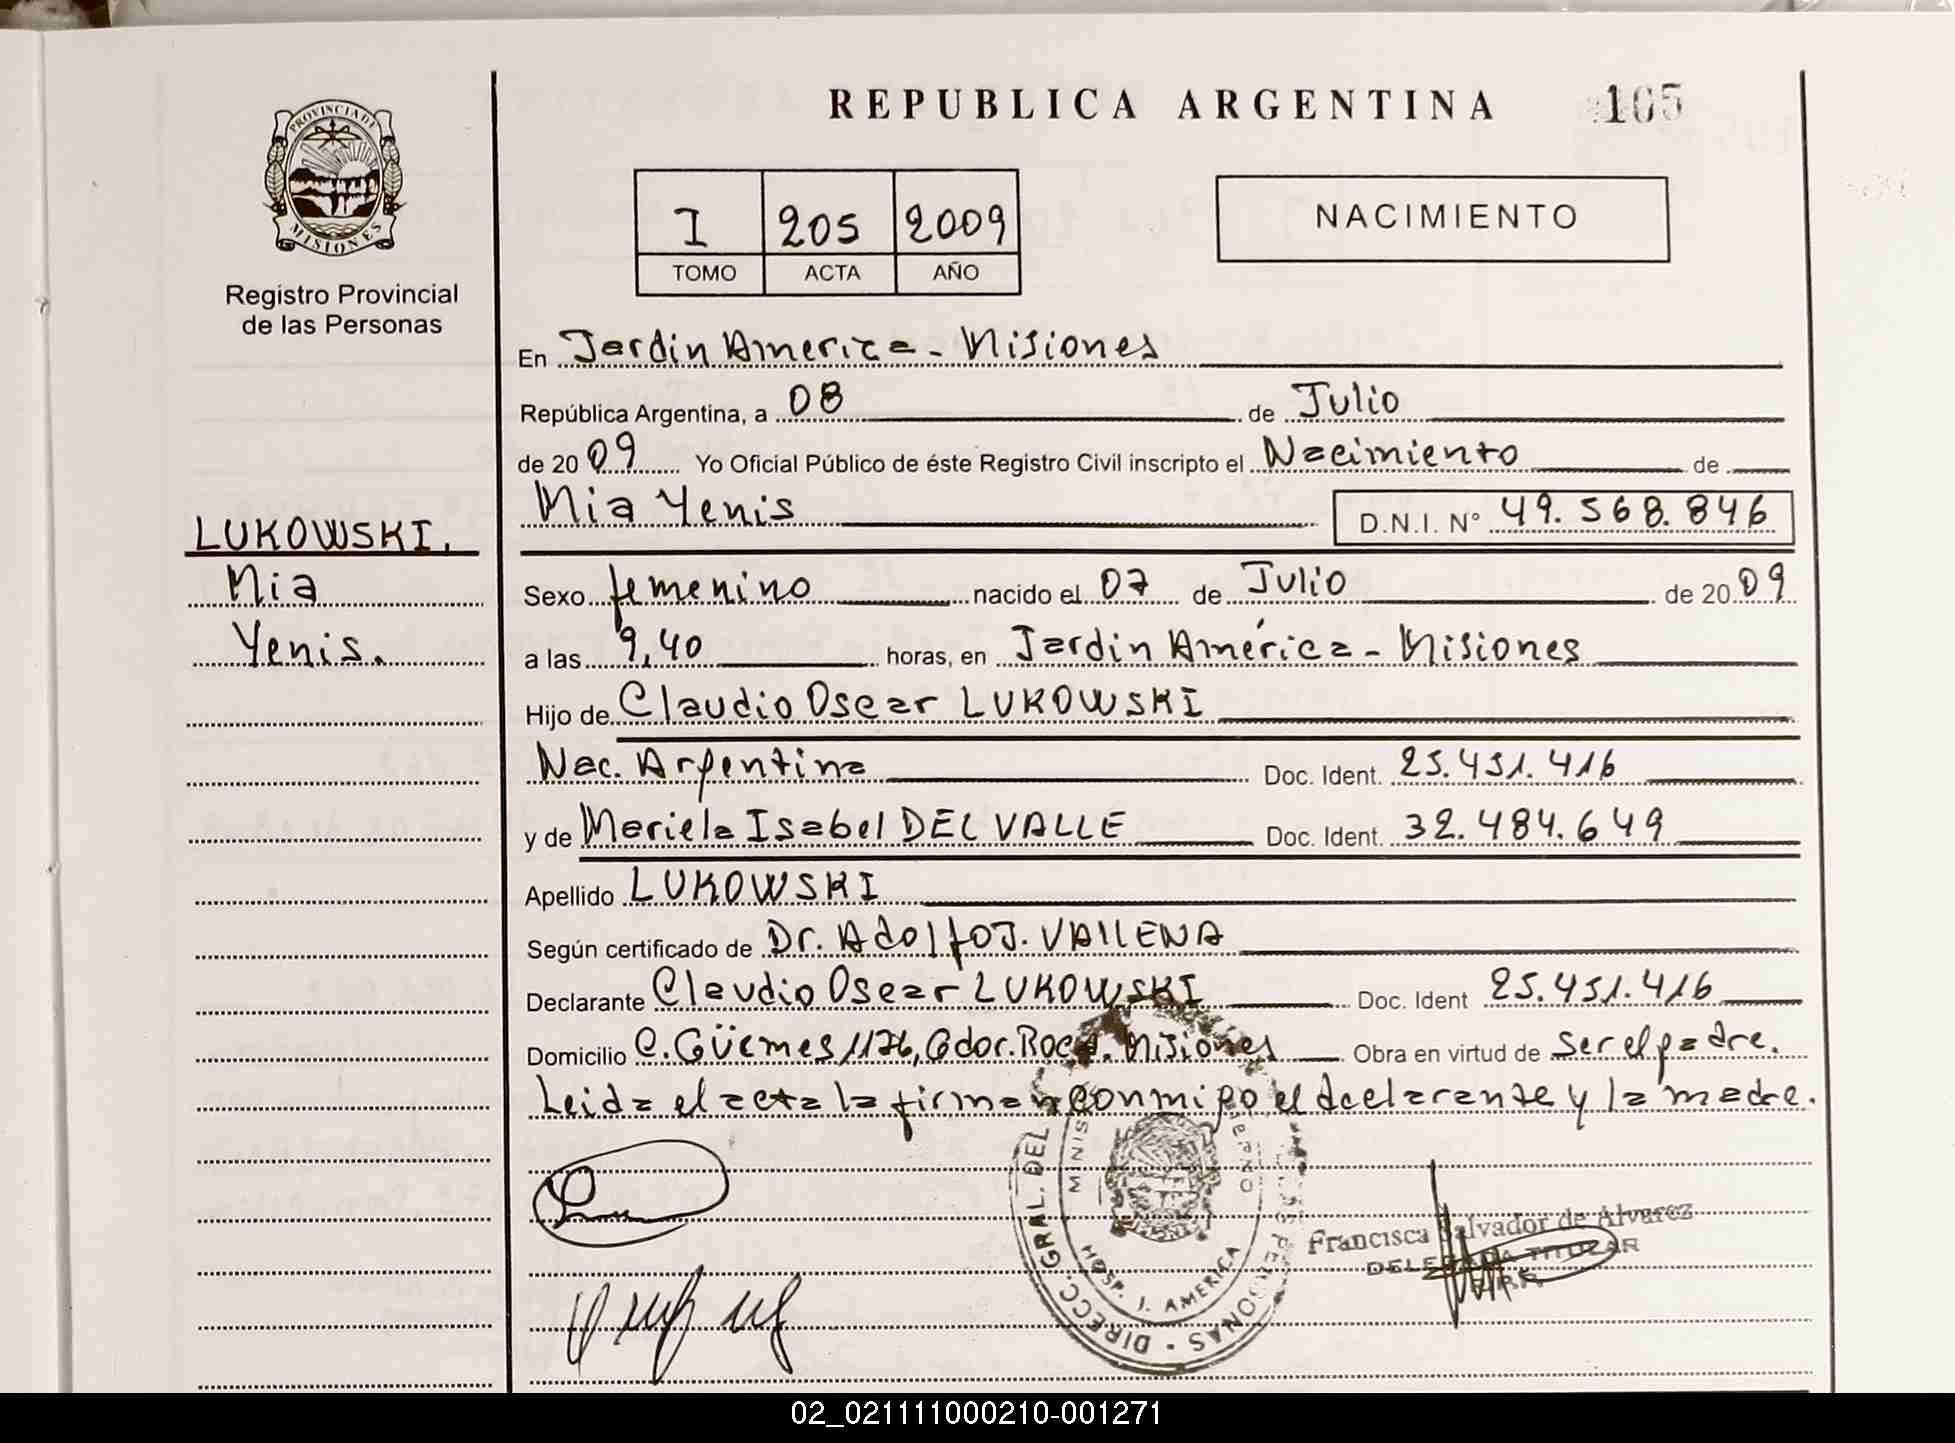 PROVINCIA DE
MISIONES
Registro Provincial
de las Personas
REPUBLICA ARGENTINA 105
I 205 2009
TOMO ACTA AÑO
NACIMIENTO
En Jardin America - Misiones
República Argentina, a 08 de Julio
de 20 09 Yo Oficial Público de éste Registro Civil inscripto el Nacimiento de
Mia Yenis D.N.I. N° 49.568.846
LUKOWSKI,
Mia
Yenis.
Sexo femenino nacido el 07 de Julio de 20 09
a las 9,40 horas, en Jardin América - Misiones
Hijo de Claudio Oscar LUKOWSKI
Nac. Argentina Doc. Ident. 25.451.416
y de Mariela Isabel DEL VALLE Doc. Ident. 32.484.649
Apellido LUKOWSKI
Según certificado de Dr. Adolfo J. VAllENA
Declarante Claudio Oscar LUKOWSKI Doc. Ident 25.451.416
Domicilio C. Güemes 1176, Gdor. Roca. Misiones Obra en virtud de ser el padre.
Leida el acta la firman conmigo el declarante y la madre.
DIRECC. GRAL. DEL PERSONAS
HOSP. J. AMERICA
Francisca Salvador de Alvarez
DELEGADA TITULAR
02_021111000210-001271